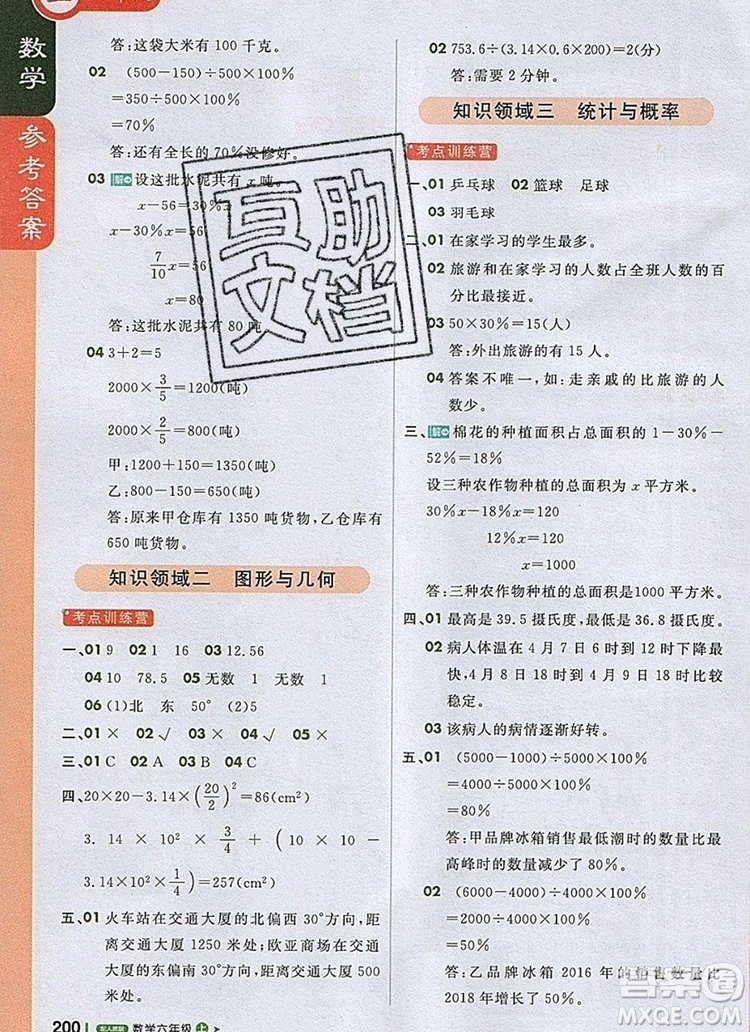 数学
参考答案
答:这袋大米有 100 千克。
02 (500-150)÷500×100%
=350÷500×100%
=70%
答:还有全长的 70%没修好。
03 解 设这批水泥共有 x 吨。
x-56=30%x
x-30%x=56
7/10 x=56
x=80
答:这批水泥共有 80 吨。
04 3+2=5
2000×3/5=1200(吨)
2000×2/5=800(吨)
甲:1200+150=1350(吨)
乙:800-150=650(吨)
答:原来甲仓库有 1350 吨货物,乙仓库有
650 吨货物。
知识领域二 图形与几何
考点训练营
一、01 9 02 1 16 03 12.56
04 10 78.5 05 无数 1 无数 1
06 (1)北 东 50° (2)5
二、01 × 02 √ 03 √ 04 √ 05 ×
三、01 C 02 A 03 B 04 C
四、20×20-3.14×(20/2)²=86(cm²)
3.14×10²×3/4+(10×10-
3.14×10²×1/4)=257(cm²)
五、01 火车站在交通大厦的北偏西 30°方向,
距离交通大厦 1250 米处;欧亚商场在交通
大厦的东偏南 30°方向,距离交通大厦 500
米处。
200 配人教版 数学六年级 上
02 753.6÷(3.14×0.6×200)=2(分)
答:需要 2 分钟。
知识领域三 统计与概率
考点训练营
一、01 乒乓球 02 篮球 足球
03 羽毛球
二、01 在家学习的学生最多。
02 旅游和在家学习的人数占全班人数的百
分比最接近。
03 50×30%=15(人)
答:外出旅游的学生有 15 人。
04 答案不唯一,如:走亲戚的比旅游的人
数少。
三、解 棉花的种植面积占总面积的 1-30%-
52%=18%
设三种农作物种植的总面积为 x 平方米。
30%x-18%x=120
12%x=120
x=1000
答:三种农作物种植的总面积是1000 平方米。
四、01 最高是 39.5 摄氏度,最低是 36.8 摄氏度。
02 病人体温在 4 月 7 日 6 时到 12 时下降最
快,4 月 8 日 18 时到 4 月 9 日 18 时比较
稳定。
03 该病人的病情逐渐好转。
五、01 (5000-1000)÷5000×100%
=4000÷5000×100%
=80%
答:甲品牌冰箱销售最低潮时的数量比最
高峰时的数量减少了 80%。
02 (6000-4000)÷4000×100%
=2000÷4000×100%
=50%
答:乙品牌冰箱 2016 年的销售数量比
2018 年增长了 50%。
互助
文档
答案圈
MXQE.COM